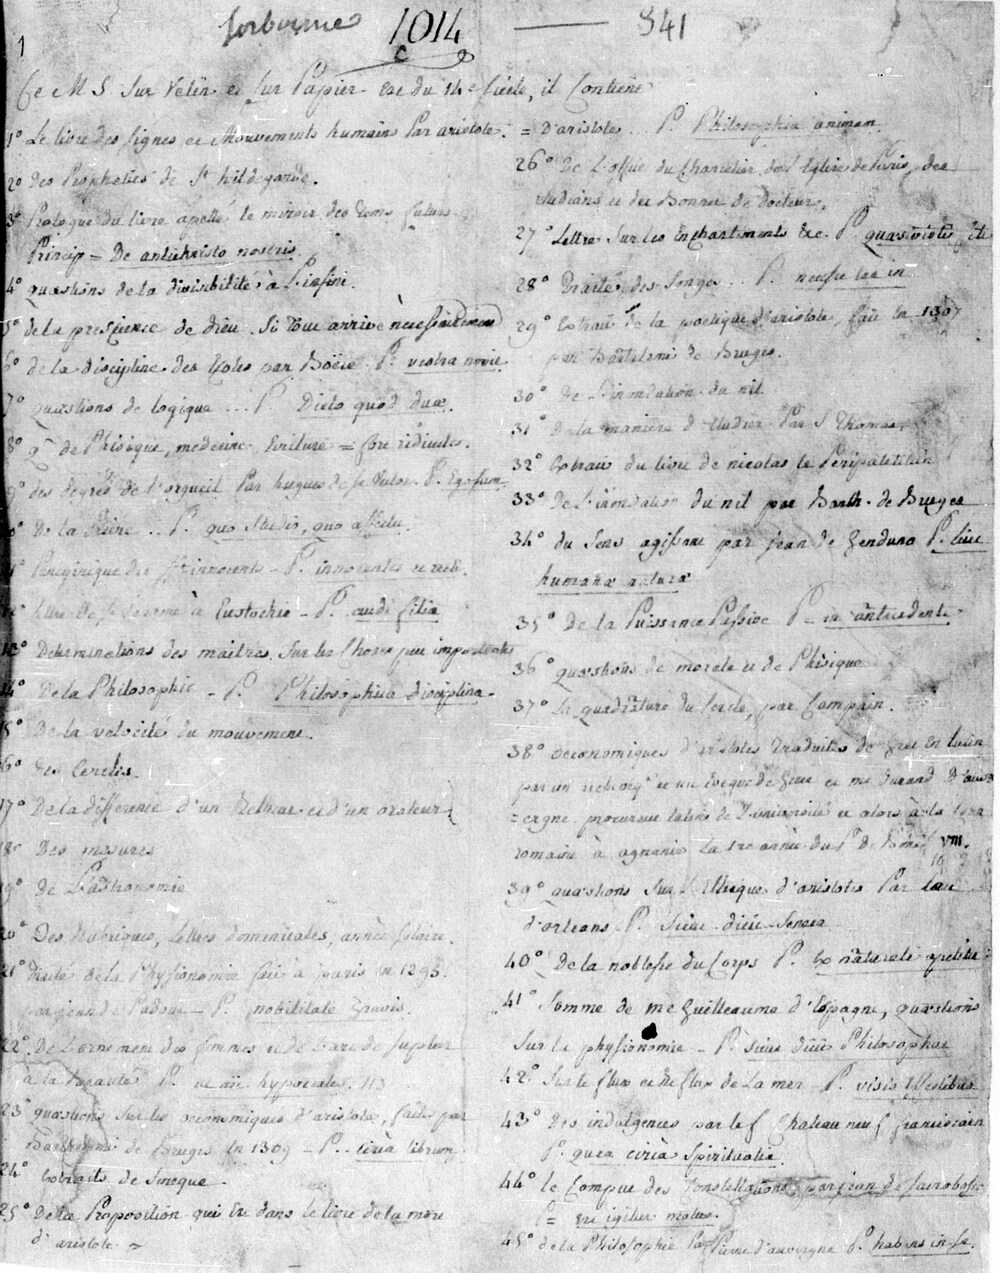 1
Sorbonne 1014 — 841
Ce MS Sur Velin et Sur Papier est du 14e Siécle, il Contient
1° Le livre des Signes et Mouvements humains Par aristote.
2° Des Propheties de Ste hildegarde.
3° Prologue du livre apellé le miroir des tems futurs.
Princip = De antichristo nostris.
4° quæstions de la divisibilité à L'infini.
5° de la prescience de dieu. Si tout arrive nécessairement
6° de la discipline des Ecoles par Boëce. P. vestra novit
7° quæstions de logique ... P. Dicto quod duæ.
8° q. de Phisique, medecine, Ecriture = fort ridicules.
9° des degrés de l'orgueil Par hugues de St Victor. P. Ego sum
10° De la ... P. quo studio, quo affectu.
11° Panegirique des Sts innocents - P. innocentes
12° lettre de St Jerome à Eustochie - P. audi filia
13° Determinations des maitres Sur les Choses peu importantes
14° De la Philosophie - P. Philosophica disciplina -
15° De la velocité du mouvement.
16° des Cercles.
17° De la difference d'un Retheur et d'un orateur
18° Des mesures
19° de L'astronomie
20° Des Rubriques, Lettres dominicales, année solaire.
21° Traité de la Physionomie fait à paris en 1295.
par jean de Padoue - P. nobilitate
22° De L'ornement des femmes et de L'art de Supleer
à la beauté P. ut ait hypocrates. 113
23° quæstions Sur les œconomiques d'aristote, faites par
Barthelemi de Bruges en 1309 - P. circa librum
24° Extraits de Seneque.
25° De la Proposition qui Est dans le livre de la mort
d'aristote =
= D'aristote ... P. Philosophia animam
26° De L'office du Chancelier de L'Eglise de Paris, des
Etudians et du Bonnet de docteur.
27° Lettre Sur les Enchantements &c. P. quæsivistis
28° Traité des Songes ... P.
29° Extrait de la poetique d'aristote, fait en 1307
par Barthelemi de Bruges.
30° De L'inondation du nil
31° De la maniere d'Etudier Par St Thomas.
32° Extrait du livre de nicolas le Peripateticien
33° De L'inondation du nil par Barth. de Bruges
34° du Sens agissant par jean de Genduno P. licet
humana natura
35° De la Puissance Passive P = in antecedente
36° quæstions de morale et de Phisique
37° La quadrature du Cercle, par Campan.
38° œconomiques d'aristote Traduites de Grec En latin
par un Archevêq. et un Eveque de Grece et me Durand d'auv
= ergne procureur latin de L'université et alors à la Cour
romaine à agnanie La 1re année du P. de Bonif. VIII.
39° quæstions Sur L'Ethique d'aristote Par
d'orleans P. Sicut dicit Seneca
40° De la noblesse du Corps P. Ex naturali apetitu
41° Somme de me Guilleaume d'Espagne, quæstions
Sur la physionomie - P. Sicut dicit Philosophus
42° Sur le flux et Reflux de La mer - P. visis
43° Des indulgences par le f. Chateauneuf franciscain
P. quia circa Spiritualia
44° le Comput des Constellations par jean de Sacrobosco
P = Est igitur motus.
45° de la Philosophie Par Pierre d'auvergne P. habens in se.